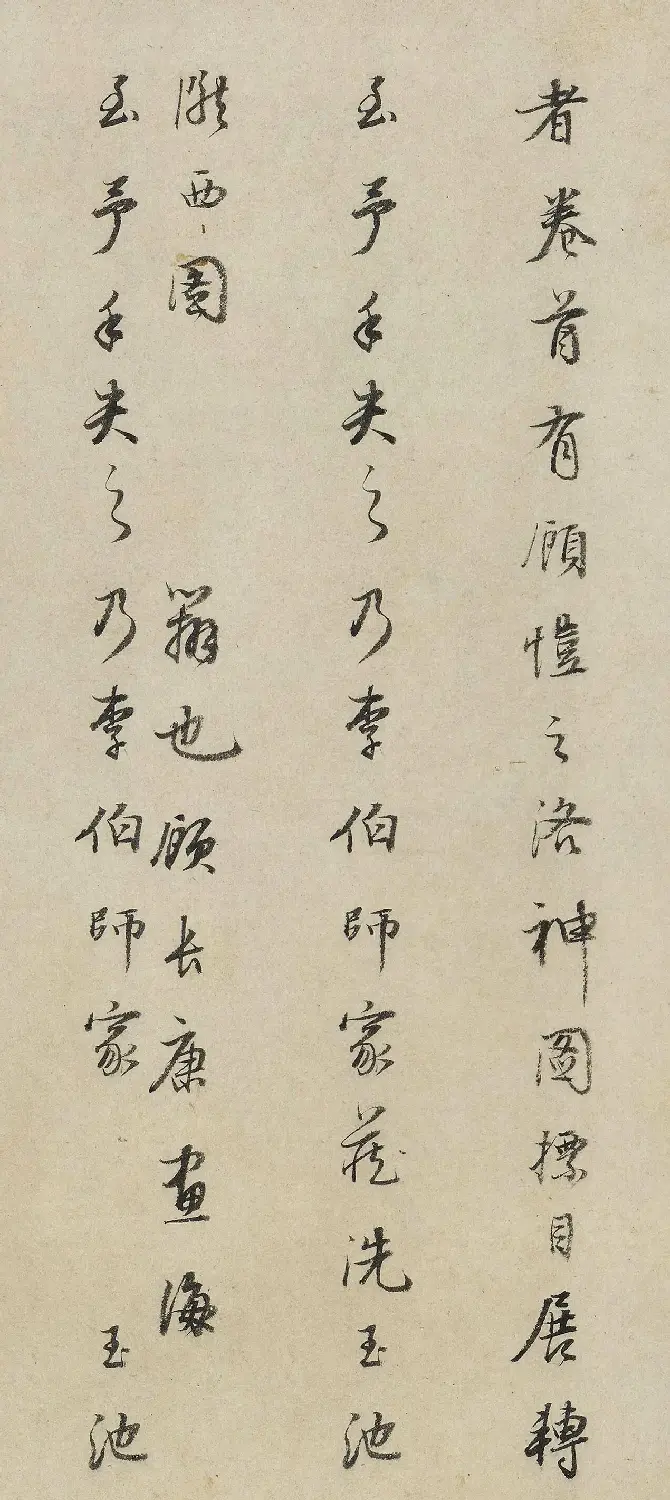 者卷首有顧愷之洛神圖標目展轉
至予手失之乃李伯師家藏洗玉池
西園 也顧長康畫
至予手失之乃李伯師家 玉池